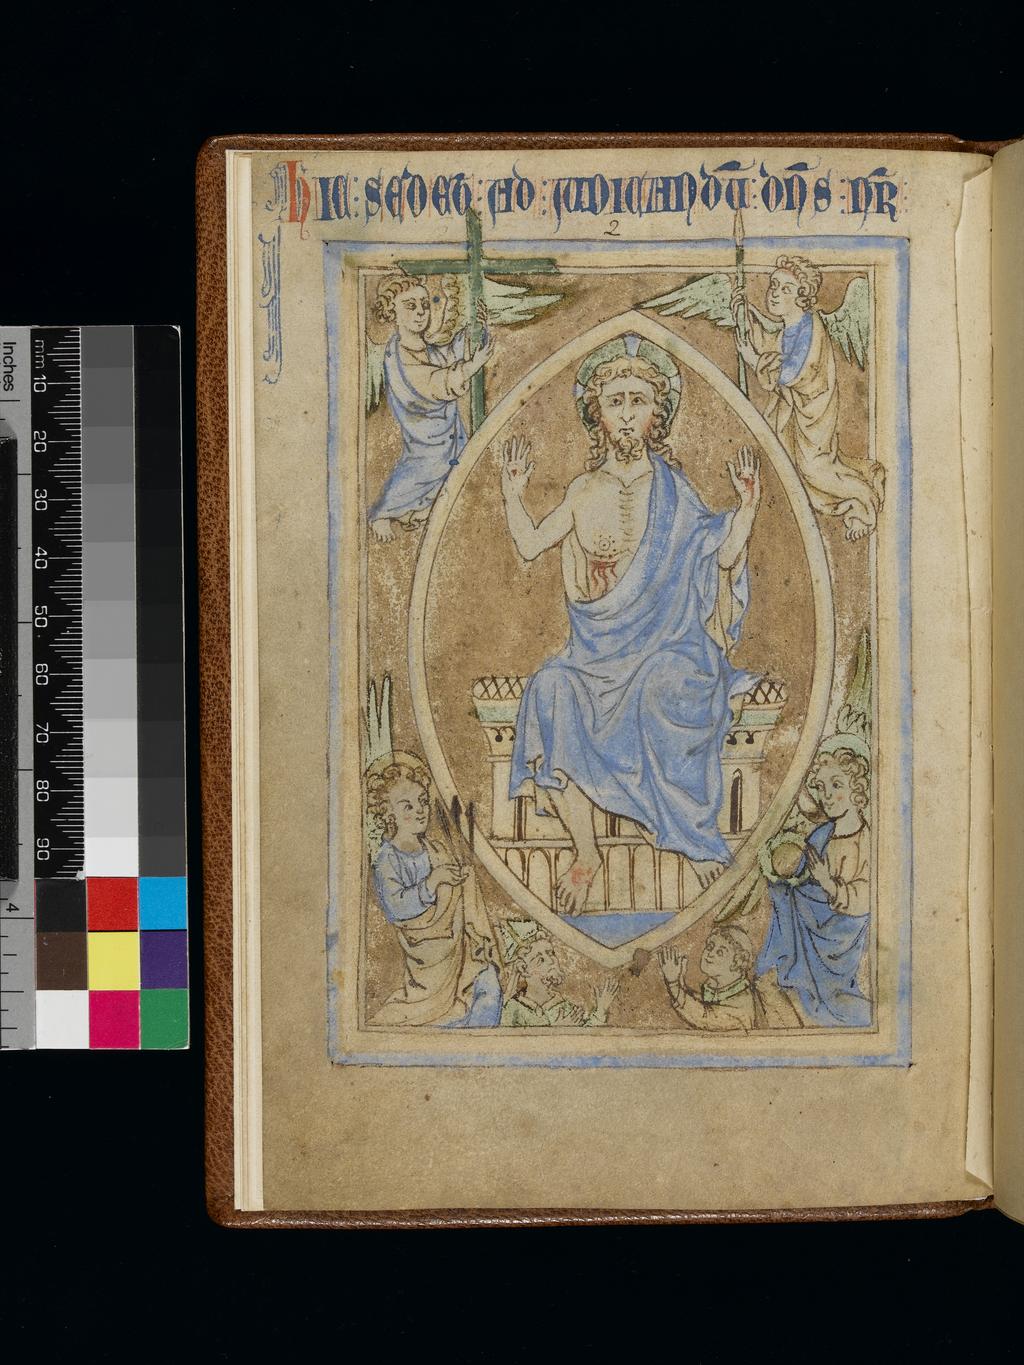 hic : sedet : ad : iudicandū : dn̄s : nr̄
2
Inches
mm 10
20
30
40
50
60
70
80
90
4